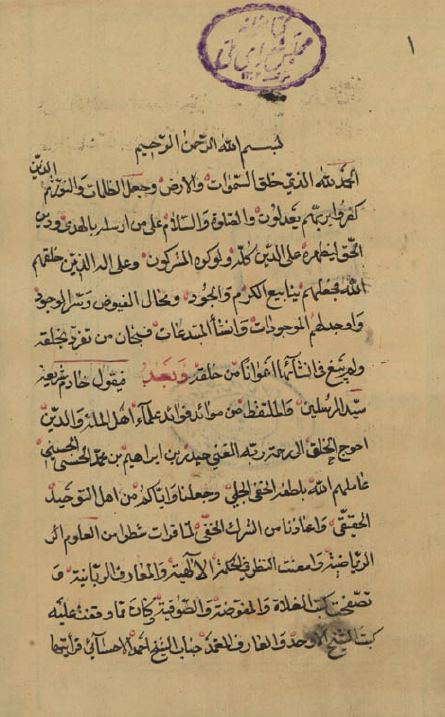 ١
بسم الله الرحمن الرحيم
الحمد لله الذي خلق السموات والأرض وجعل الظلمات والنور ثم الذين
كفروا بربهم يعدلون والصلوة والسلام على من ارسله بالهدى ودين
الحق ليظهره على الدين كله ولو كره المشركون وعلى اله الذين خلقهم
الله فجعلهم ينابيع الكرم والجود ومحال الفيوض وسر الوجود
واوجد لهم الموجودات وانشأ المبتدعات فسبحان من تفرد بخلقه
ولم يتبع في انشائها اعوانا من خلقه وبعد فيقول خادم شريعة
سيد المرسلين والملتقط من موائد فوائد علماء اهل الملة والدين
احوج الخلق الى رحمة ربه الغني حيدر بن ابراهيم بن محمد الحسني الحسيني
عاملهم الله بلطفه الخفي الجلي وجعلنا واياكم من اهل التوحيد
الحقيقي واعاذنا من الشرك الخفي لما قرات شطرا من العلوم
الرياضية وامعنت النظر في الحكمة الالهية والمعارف الربانية و
تصفحت كتب الغلاة والمفوضة والصوفية وكان مما وقفت عليه
كتب الشيخ الاوحد والعارف جناب الشيخ احمد الاحسائي قرايتها